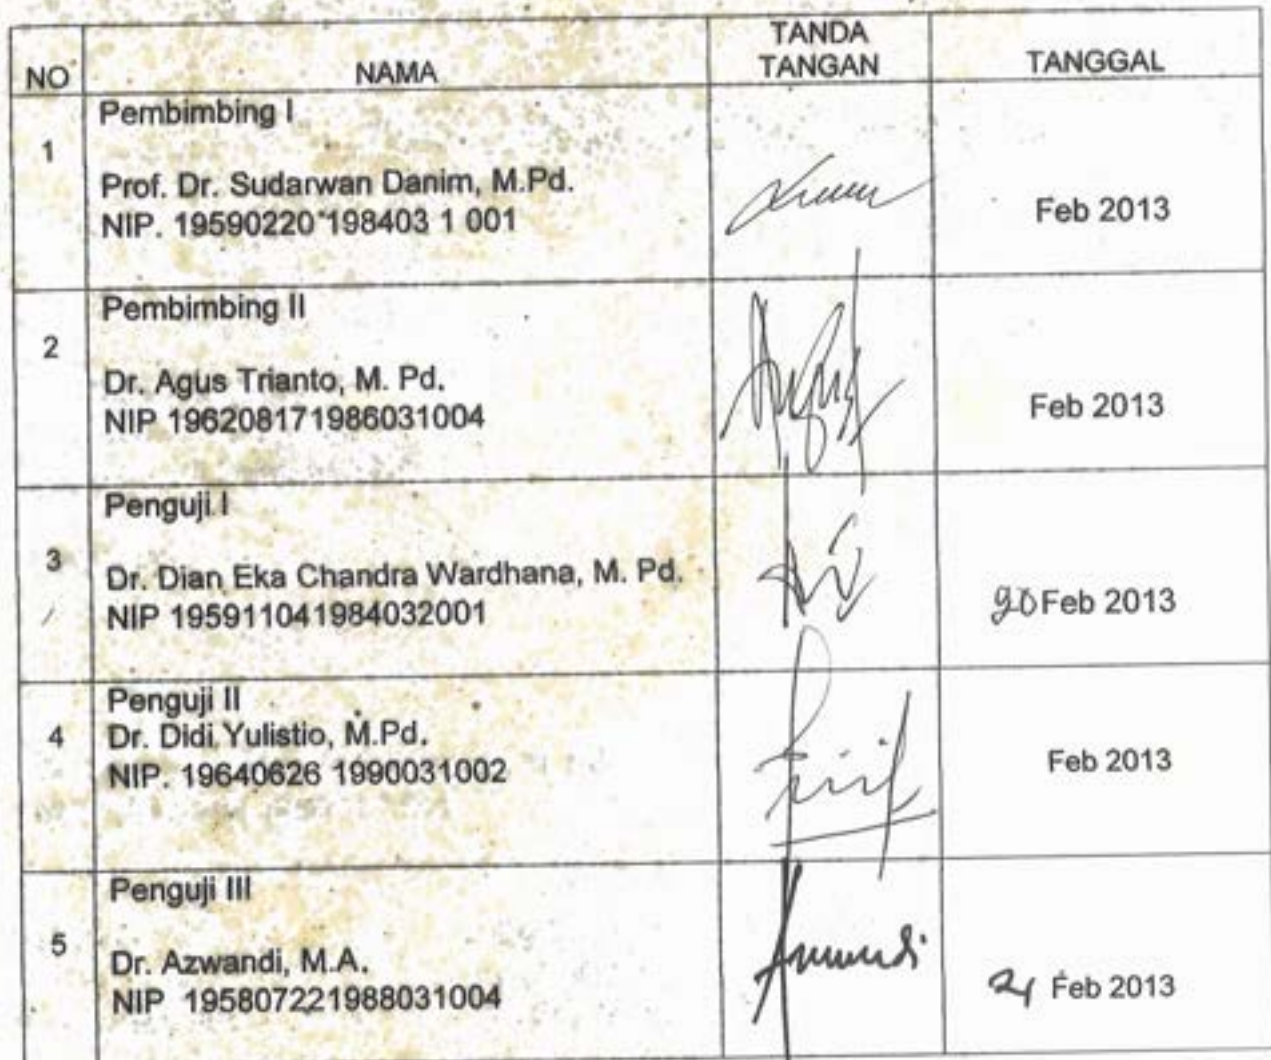 NO NAMA TANDA TANGAN TANGGAL
Pembimbing I
1
Prof. Dr. Sudarwan Danim, M.Pd.
NIP. 19590220 198403 1 001
Feb 2013
Pembimbing II
2
Dr. Agus Trianto, M. Pd.
NIP 196208171986031004
Feb 2013
Penguji I
3
Dr. Dian Eka Chandra Wardhana, M. Pd.
NIP 195911041984032001
20 Feb 2013
Penguji II
4
Dr. Didi Yulistio, M.Pd.
NIP. 19640626 1990031002
Feb 2013
Penguji III
5
Dr. Azwandi, M.A.
NIP 195807221988031004
Feb 2013